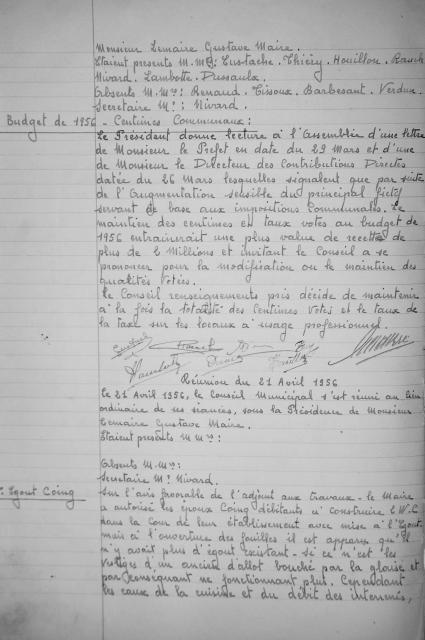 Monsieur Lemaire Gustave Maire.
Etaient presents M.Mrs: Eustache. Thiéry. Houillon. Rauch
Nivard. Lambotte. Dussaulx.
Absents M.Mrs: Renaud. Tissoux. Barbesant. Verdun.
Secretaire Mr: Nivard.
Budget de 1956 - Centimes Communaux:
Le Président donne lecture à l'Assemblée d'une lettre
de Monsieur le Préfet en date du 29 Mars et d'une
de Monsieur le Directeur des Contributions Directes
datée du 26 Mars lesquelles signalent que par suite
de l'Augmentation sensible du principal fictif
servant de base aux impositions Communales. Le
maintien des centimes en taux votés au budget de
1956 entrainerait une plus value de recettes de
plus de 2 Millions et invitant le Conseil a se
prononcer pour la modification ou le maintien des
quotités votées.
Le Conseil renseignements pris décide de maintenir
à la fois la totalité des Centimes Votés et le taux de
la taxe sur les locaux à usage professionnel.
Réunion du 21 Avril 1956
Le 21 Avril 1956, le Conseil Municipal s'est réuni au lieu
ordinaire de ses séances, sous la Présidence de Monsieur
Lemaire Gustave Maire.
Etaient présents M.Mrs:
Absents M.Mrs:
Secretaire Mr Nivard.
Egout Coing
Sur l'avis favorable de l'adjoint aux travaux - le Maire
a autorisé les époux Coing débitants à construire 2 W.C
dans la Cour de leur établissement avec mise à l'Egout
mais à l'ouverture des fouilles il est apparu qu'il
n'y avait plus d'égout existant - si ce n'est les
vestiges d'un ancien dallot bouché par la glaise et
par conséquent ne fonctionnant plus. Cependant
les eaux de la cuisine et du débit des interressés,